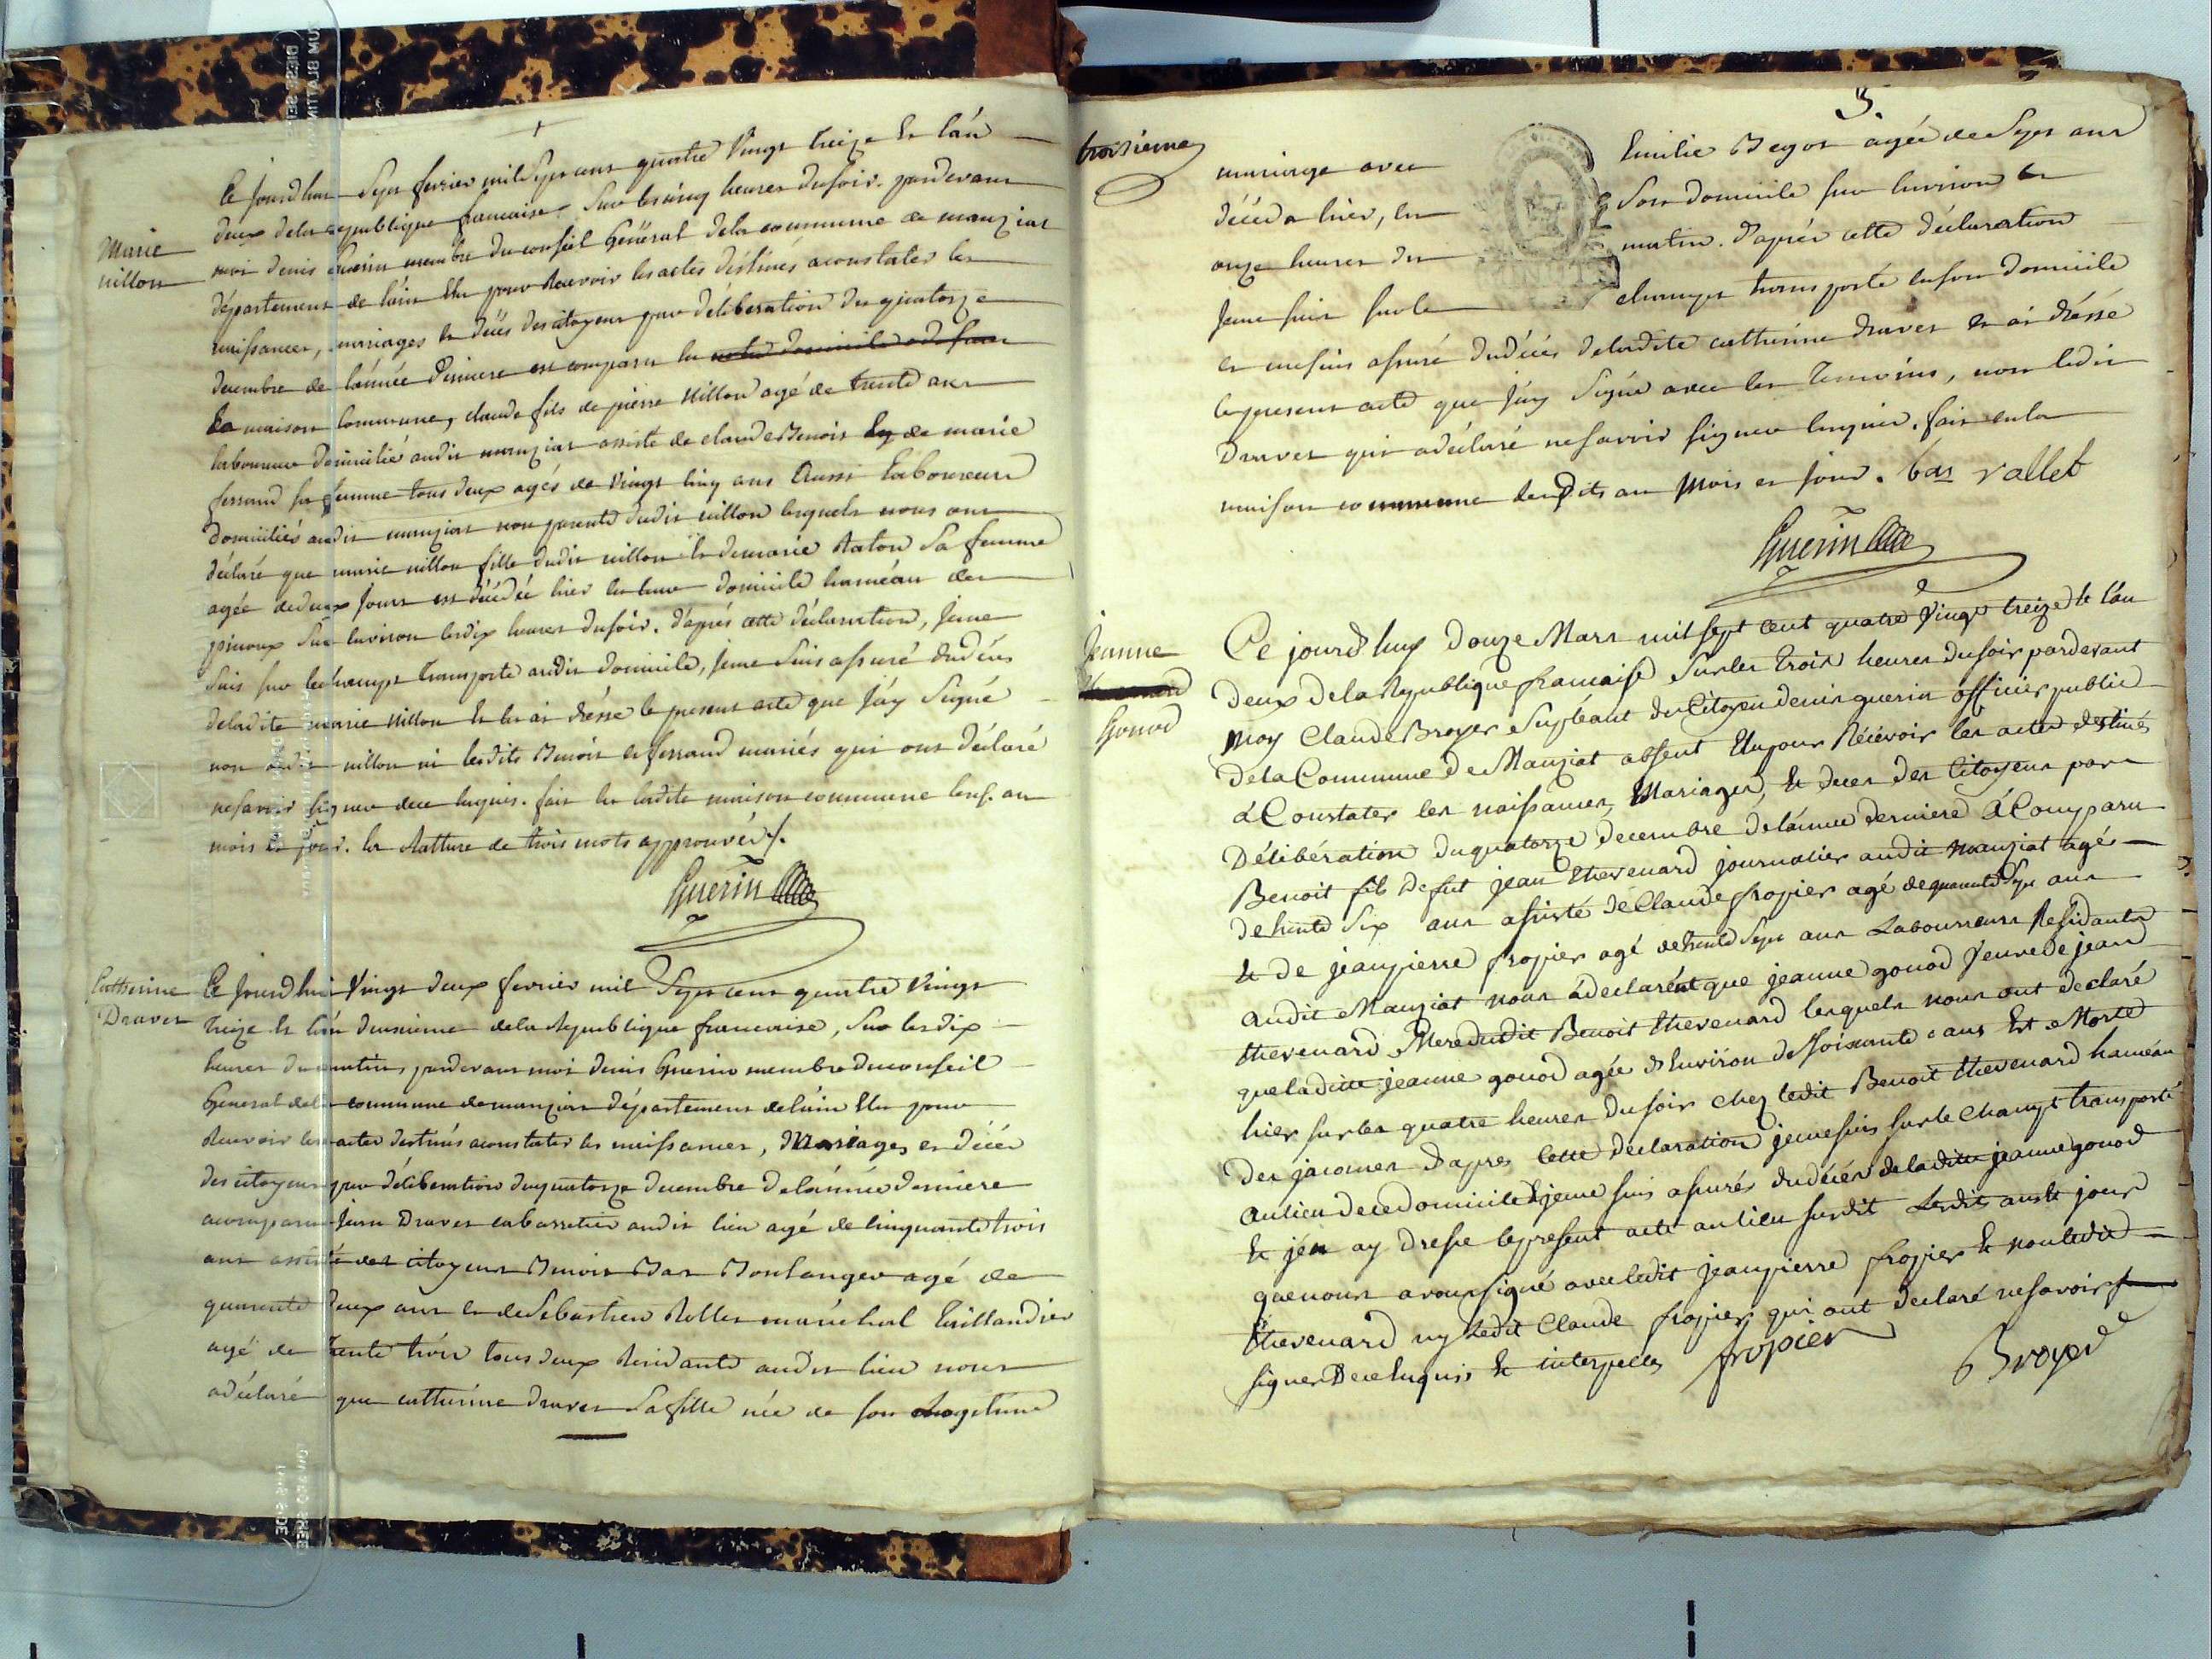 Ce jourdhui sept fevrier mil sept cens quatre vingt treize et l'an
deux de la republique francaise. Sur les cinq heures du soir. pardevant
Marie
nillon
moi denis Guerin membre du conseil Général de la commune de manziat
département de l'ain Elu pour recevoir les actes destinés a constater les
naissances, mariages et décés des citoyens par déliberation du quatorze
decembre de l'année derniere est comparu en
la maison Commune, claude fils de pierre Nillon agé de trente ans
laboureur domicilié audit manziat assisté de claude Benoit et de marie
ferrand sa femme tous deux agés de vingt cinq ans aussi Laboureurs
domiciliés audit manziat non parents dudit nillon lesquels nous ont
déclaré que marie nillon fille dudit nillon et de marie Raton sa femme
agée de deux jours est décédée hier en leur domicile haméau des
pinoux sur environ les dix heures du soir. d'aprés cette déclaration, je me
suis sur le champt transporté audit domicile, je me suis assuré du décés
de ladite marie Nillon et en ai dréssé le present acte que j'ay signé
non ledit nillon ni lesdits Benoit et ferrand mariés qui ont déclaré
ne savoir signer de ce enquis. fait en ladite maison commune lesd. an
mois et jour. la Ratture de trois mots approuvée /.
Guerin
Catherine
Draver
Ce jourdhui vingt deux fevrier mil sept cens quatre vingt
treize et l'an deuxieme de la Republique francaise, sur les dix
heures du matin, pardevant moi denis Guerin membre du conseil
General de la commune de manziat département de l'ain Elu pour
Recevoir les actes destinés a constater les naissances, Mariages et décés
des citoyens par déliberation du quatorze decembre de l'année derniere
a comparu jean Draver cabarretier audit lieu agé de cinquante trois
ans assisté des citoyens Benoit Bas Boulanger agé de
quarente deux ans et de Sebastien Rollet maréchal taillandier
agé de trente trois tous deux Residants audit lieu nous
a déclaré que catherine draver sa fille née de son légitime
3.
troisieme
mariage avec Emilie Begot agée de sept ans
décéda hier, en son domicile sur environ les
onze heures du matin. d'aprés cette déclaration
je me suis sur le champt transporté en son domicile
et me suis assuré du décés de ladite catherine draver et ai dréssé
le present acte que j'ay signé avec les temoins, non ledit
Draver qui a déclaré ne savoir signer enquis. fait en la
maison commune lesdits an mois et jour. bas vallet
Guerin
Jeanne
Gonod
Ce jourd'huy douze Mars mil sept cent quatre vingt treize et l'an
deux de la Republique francaise sur les trois heures du soir pardevant
moy Claude Broyer supléant du Citoyen denis guerin officier public
de la Commune de Manziat absent Elu pour Récévoir les actes destinés
á Constater les naissances, Mariages, et deces des Citoyens par
Délibération du quatorze decembre de l'année derniere á Comparu
Benoit fils de fut jean thevenard journalier audit manziat agé
de trente six ans assisté de Claude fropier agé de quarente sept ans
et de jeanpierre fropier agé de trente sept ans Laboureurs Residants
audit Manziat nous a declarént que jeanne gonod veuve de jean
thevenard Mere dudit Benoit thevenard lesquels nous ont declaré
que laditte jeanne gonod agée d'Environ de soixante ans Est Morte
hier sur les quatre heures du soir chez ledit Benoit thevenard haméau
des jacomes d'apres cette declaration je me suis sur le champt transporté
au lieu de ce domicile et je me suis assurés du décés de laditte jeanne gonod
et j'en ay dresse le present acte au lieu susdit Lesdits an et jour
que nous avons signé avec ledit jeanpierre fropier et non ledit
thevenard ny Ledit Claude fropier qui ont declaré ne savoir
signer De ce Enquis et interpelles fropier Broyer